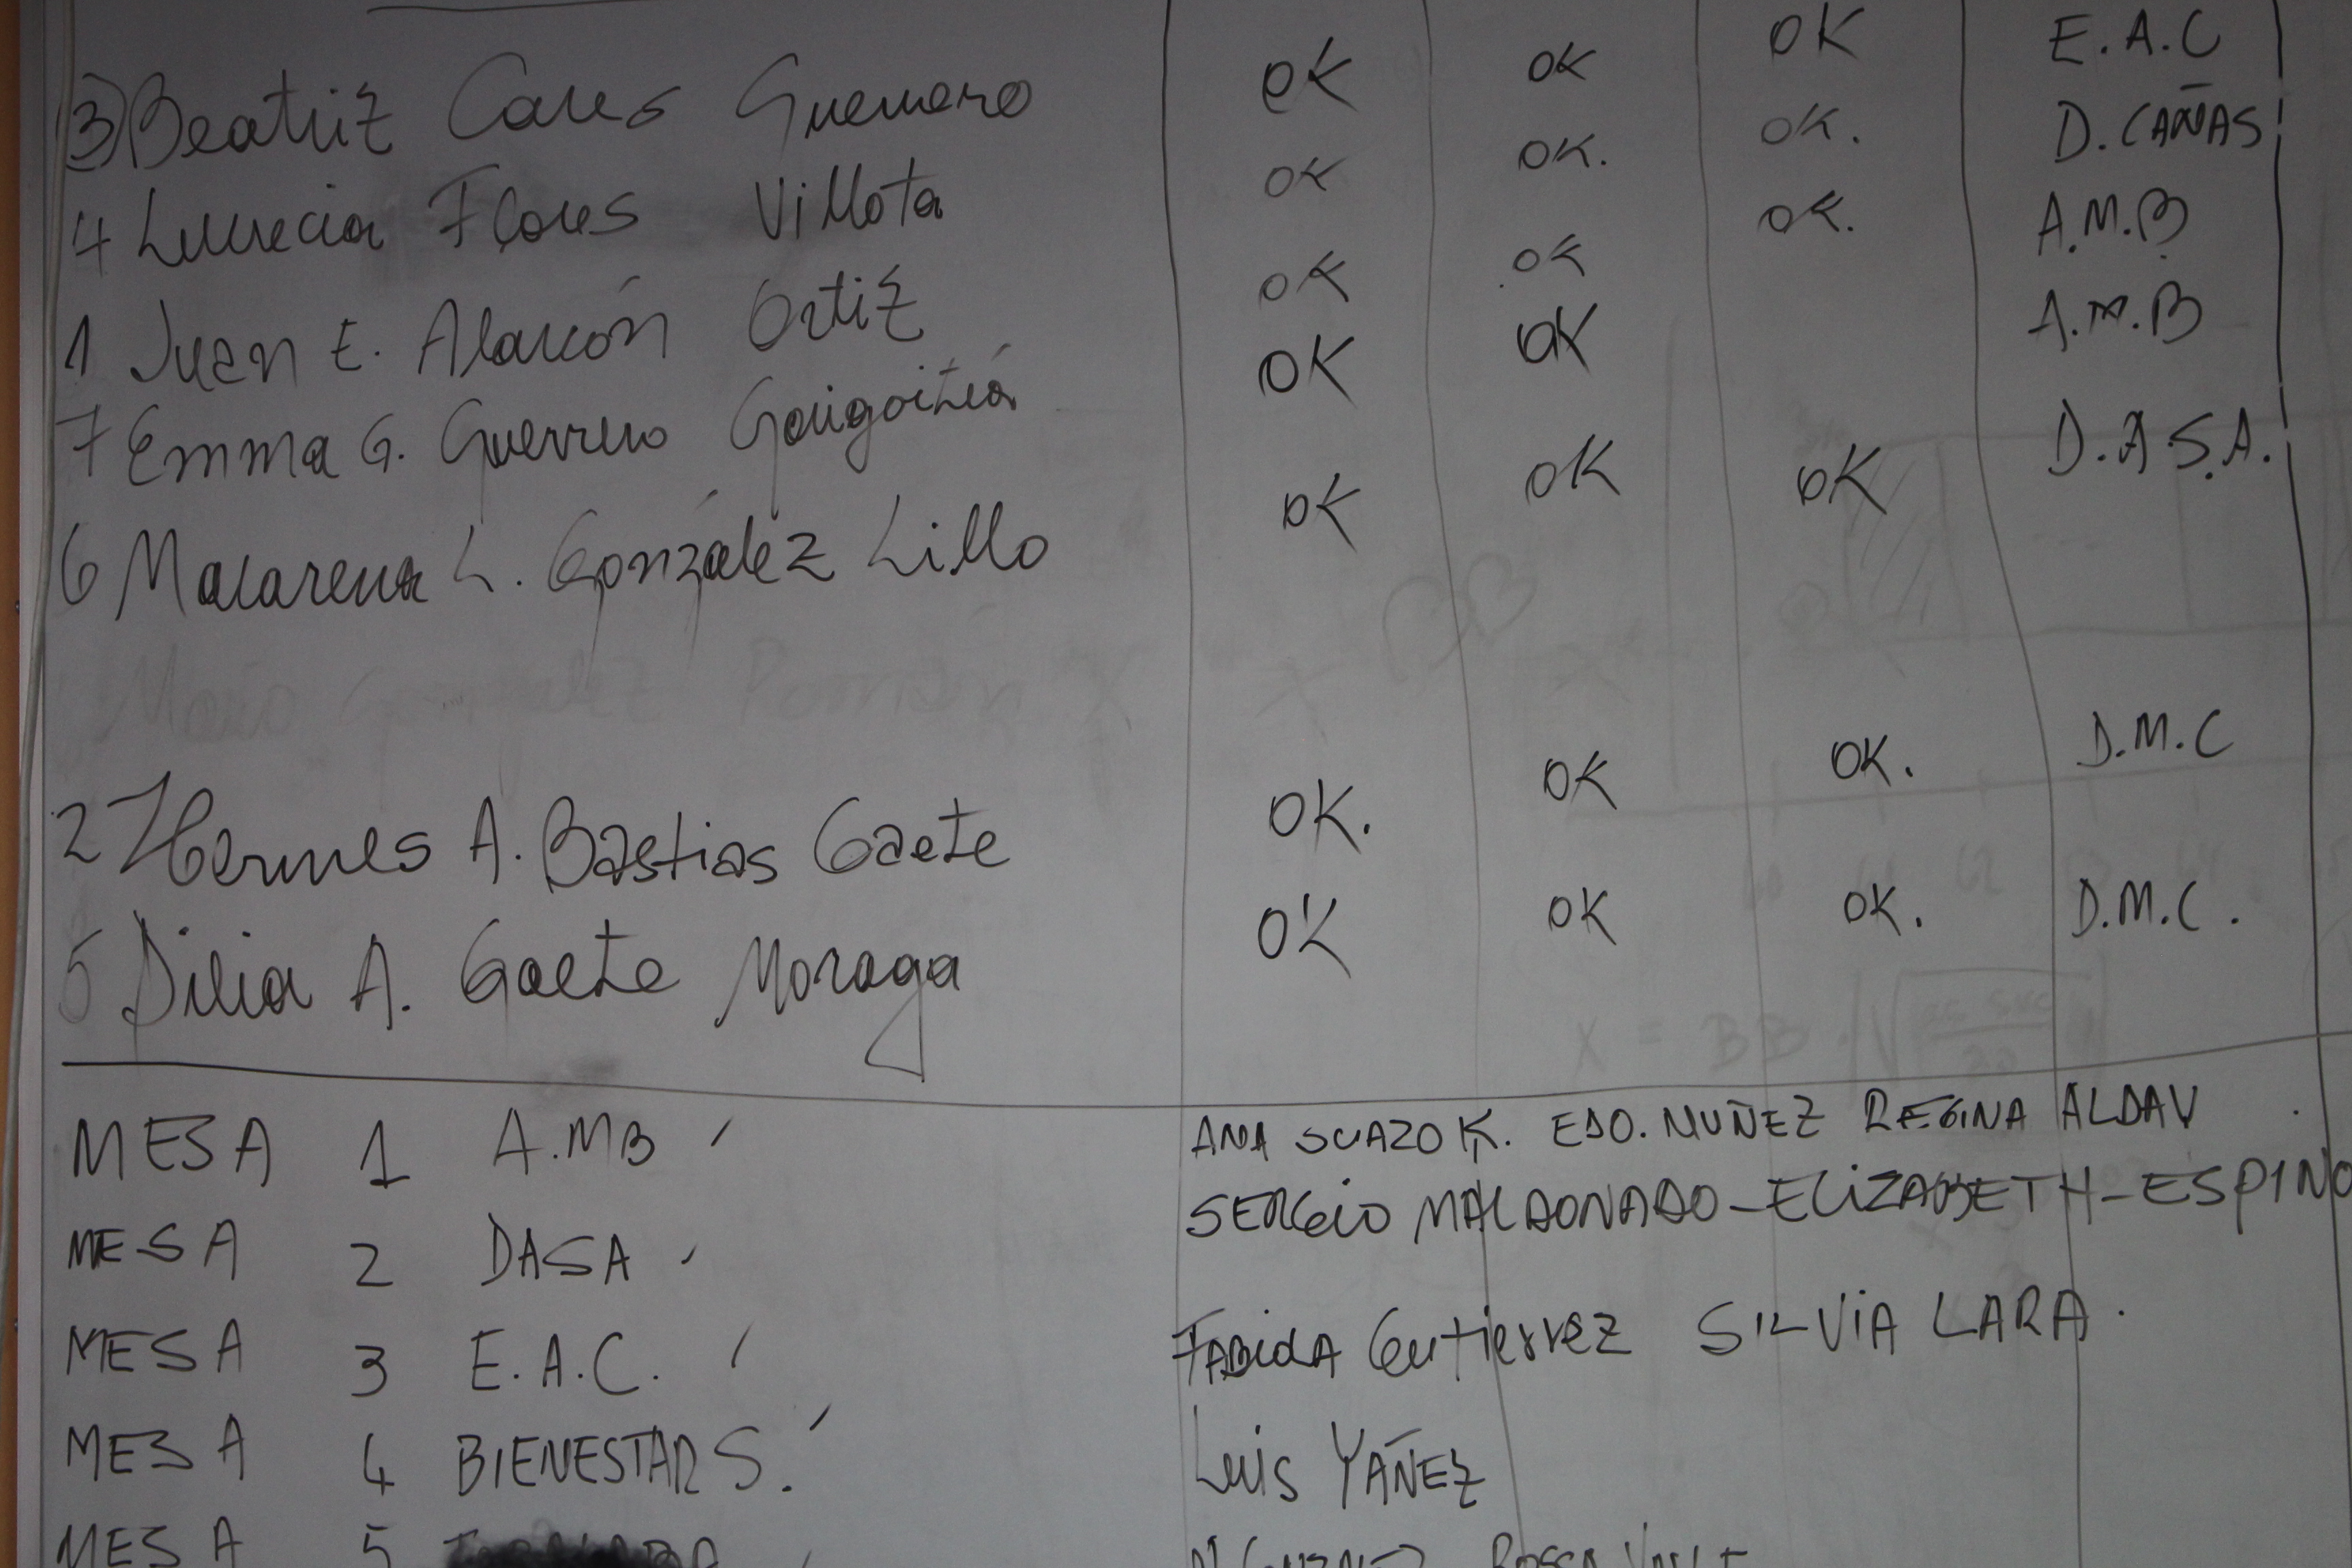 3 Beatriz Cares Guerrero OK OK OK E.A.C
4 Lucrecia Flores Villota OK OK. OK. D. CAÑAS
1 Juan E. Alarcón Ortiz OK OK OK. A.M.B
7 Emma G. Guerrero Goigoitía OK OK A.M.B
6 Macarena L. González Lillo OK OK OK D.A.S.A.
González Román X X
2 Hermes A. Bastias Gaete OK. OK OK. D.M.C
5 Dilia A. Gaete Moraga OK OK OK. D.M.C.
X = BB
MESA 1 A.MB ANA SUAZO K. EDO. MUÑEZ REGINA ALDAV
MESA 2 DASA SERGIO MALDONADO-ELIZABETH-ESPINO
MESA 3 E.A.C. FABIOLA Gutierrez SILVIA LARA.
MESA 4 BIENESTAR S. Luis YAÑEZ
MESA 5